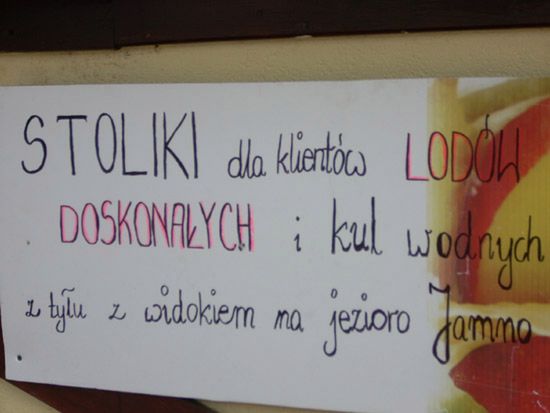 STOLIKI dla klientów LODÓW
DOSKONAŁYCH i kul wodnych
z tyłu z widokiem na jezioro Jamno